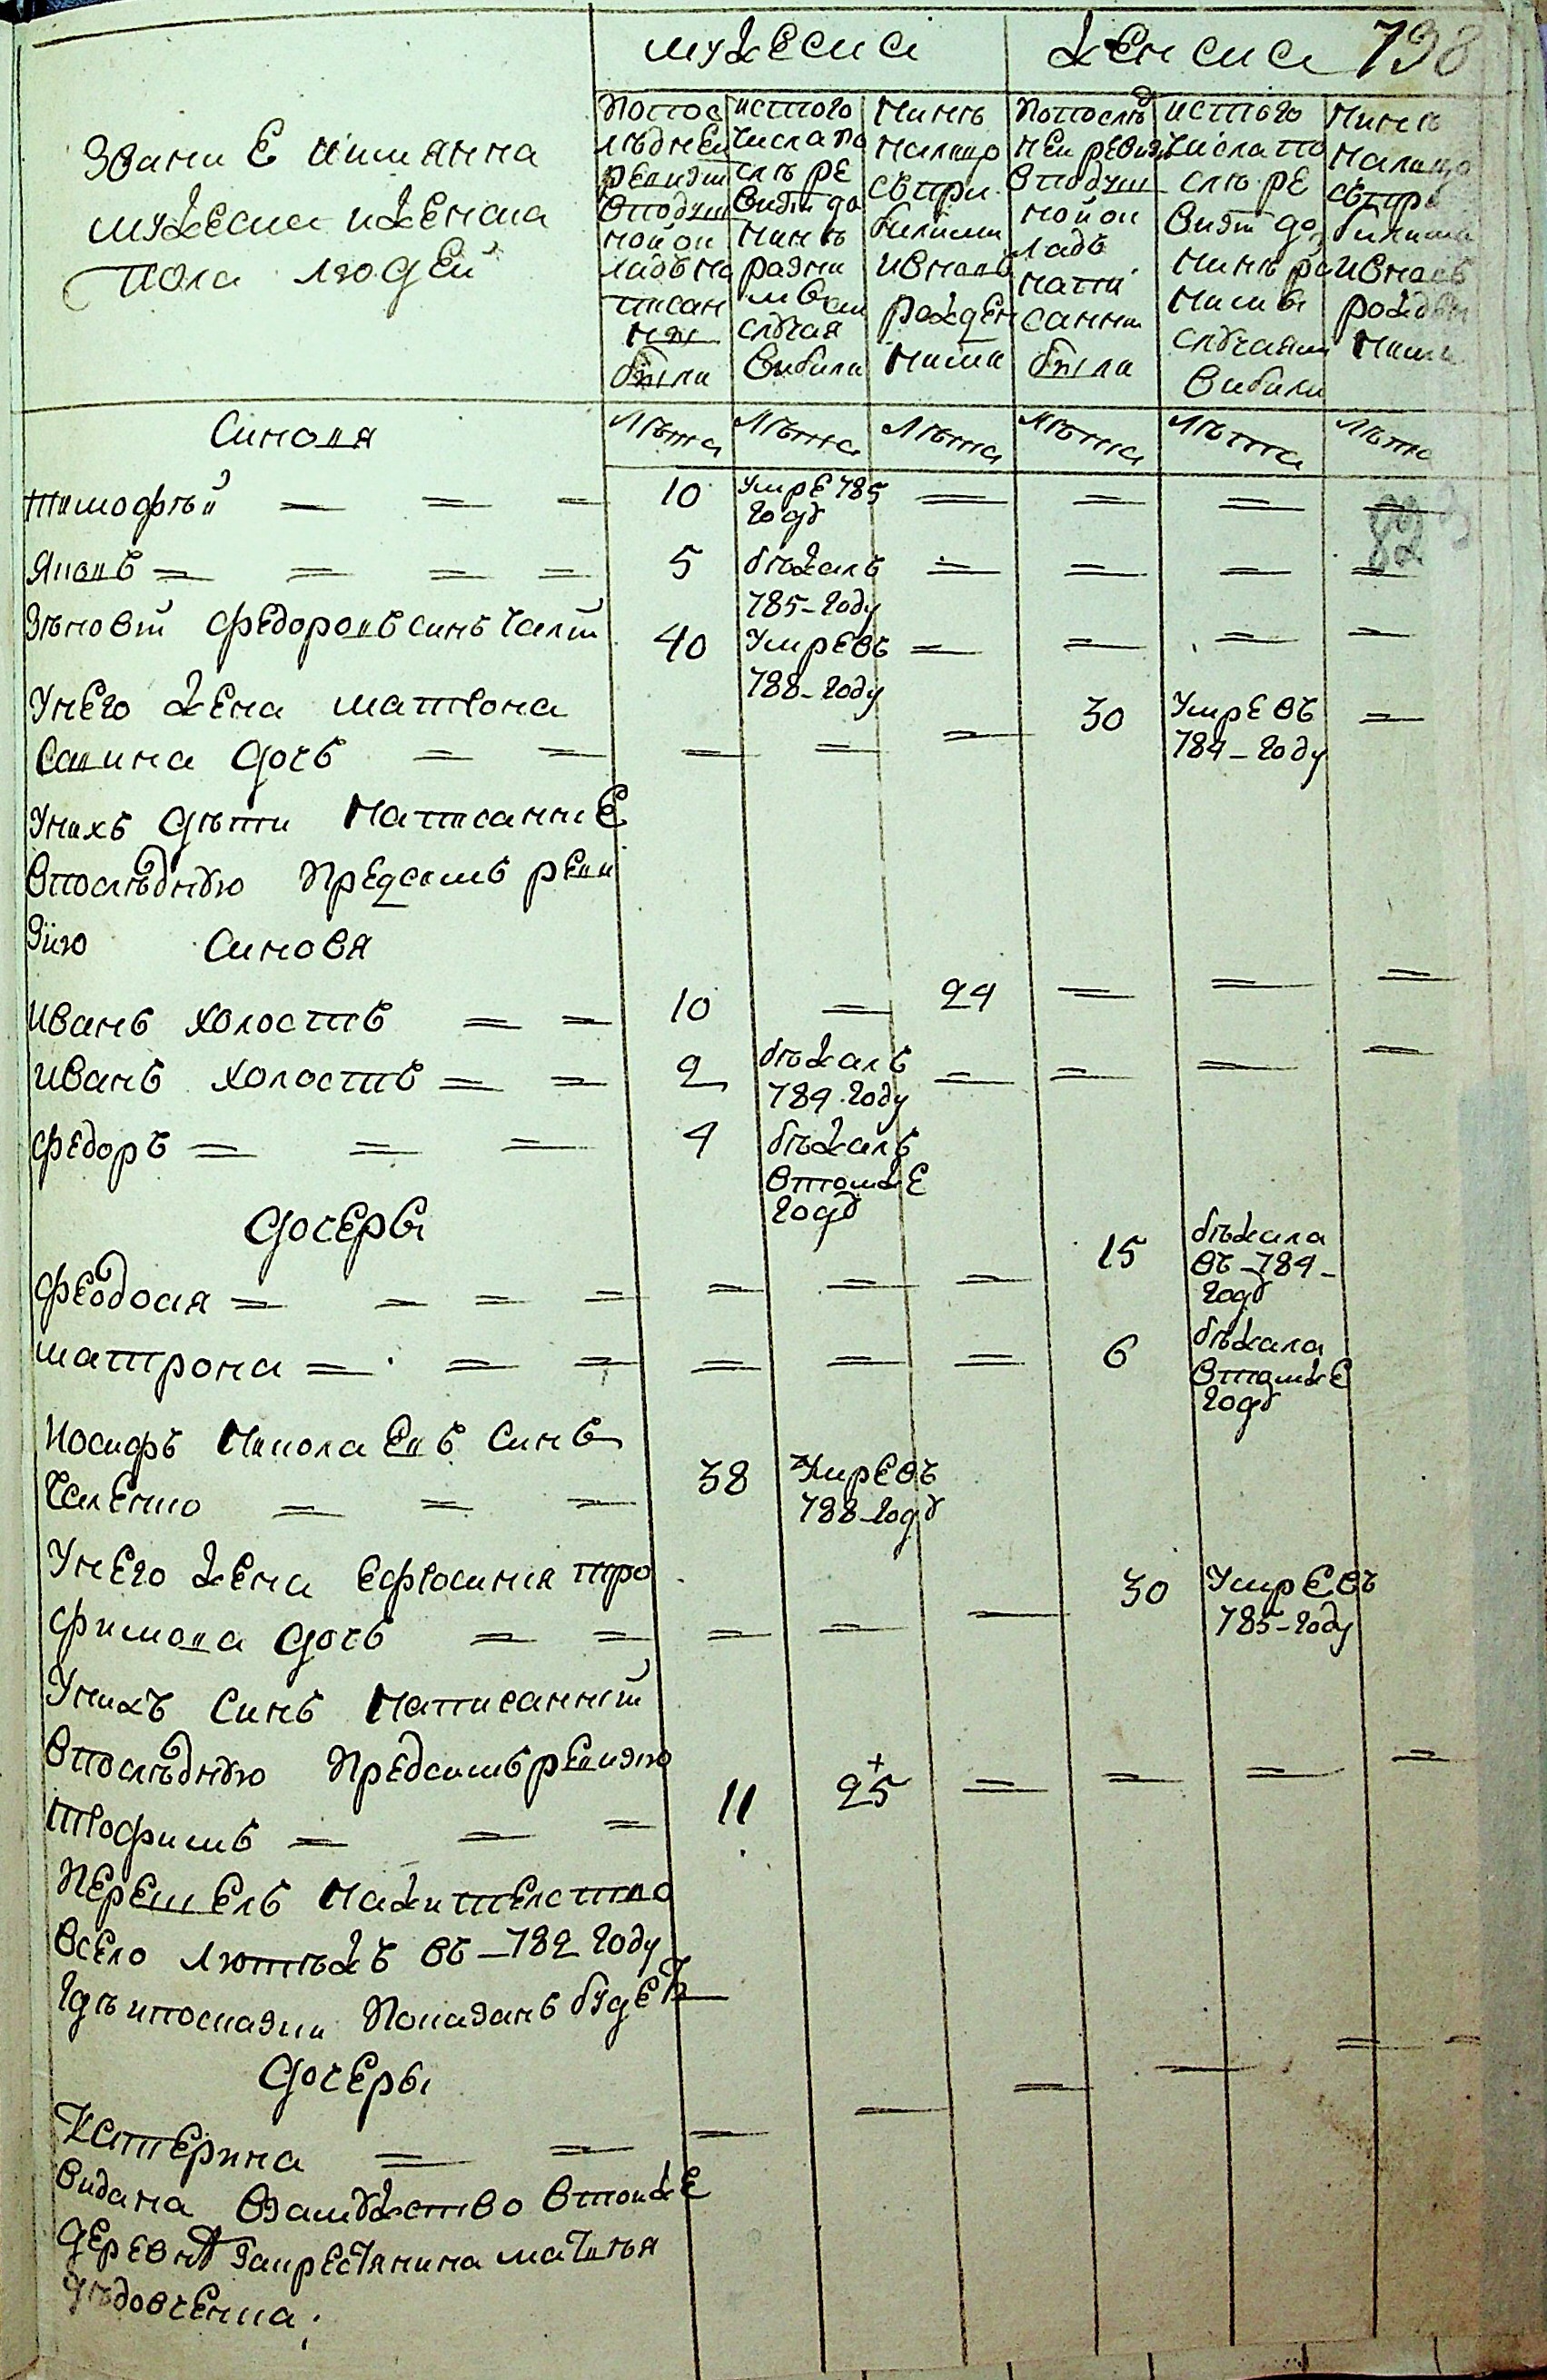 мужеска женска 798
Звание иимянна
мужеска иженска
пола людей
Попос
лѣдней
ревизіи
вподуш
ной ок
ладъ на
писан
ніи
были
истого
числа по
слѣ ре
визіи до
нинѣ
разни
ми
случая
вибили
Нинѣ
налицо
съ при
билими
ивновъ
рожден
ними
Попослѣд
ней ревизіи
вподуш
ной ок
ладъ
напи
санни
были
истого
числа по
слѣ ре
визіи до
нинѣ ра
ними
случаями
вибили
Нинѣ
налицо
съ при
билими
ивновъ
рожден
ними
Синовя Лѣта Лѣта Лѣта Лѣта Лѣта Лѣта
тимофѣй — = — 10 Умре 785 = = = =
году
Яковъ = = = = 5 бѣжалъ = = = =
785-году
Зѣновій федоровъ синъ Чалій 40 Умре въ = = = =
788-году
Унего жена матрона
Савина дочь = = = = = 30 Умре въ =
784-году
Унихъ дѣти Написанние
впослѣднюю Предсимъ реви
зию Синовя
иванъ холостъ = = 10 = 24 = = =
иванъ холостъ = = 2 бѣжалъ = = = =
784 году
федоръ = = = 4 бѣжалъ
втомже
году
дочеры
феодосия = = = = = = = 15 бѣжала
въ-784-
году
матрона = = = = = = 6 бѣжала
втомже
году
Иосифъ Николаевъ синъ
Чаленко = = = 38 Умре въ
788-году
Унего жена ефросиния тро
фимова дочь = = = = — 30 Умре въ
785-году
Унихъ Синъ Написанній
впослѣднюю Предсимъ ревизию
трофимъ = = = 11 + 25 = = = =
Перешелъ Нажителство
всело Лютѣжъ въ-782 году
гдѣ ипосказки Показанъ будетъ —
дочеры
Катерина = = = = = = = =
видана взамужство втойже
деревнѣ Закрестянина матвѣя
дѣдовченка.